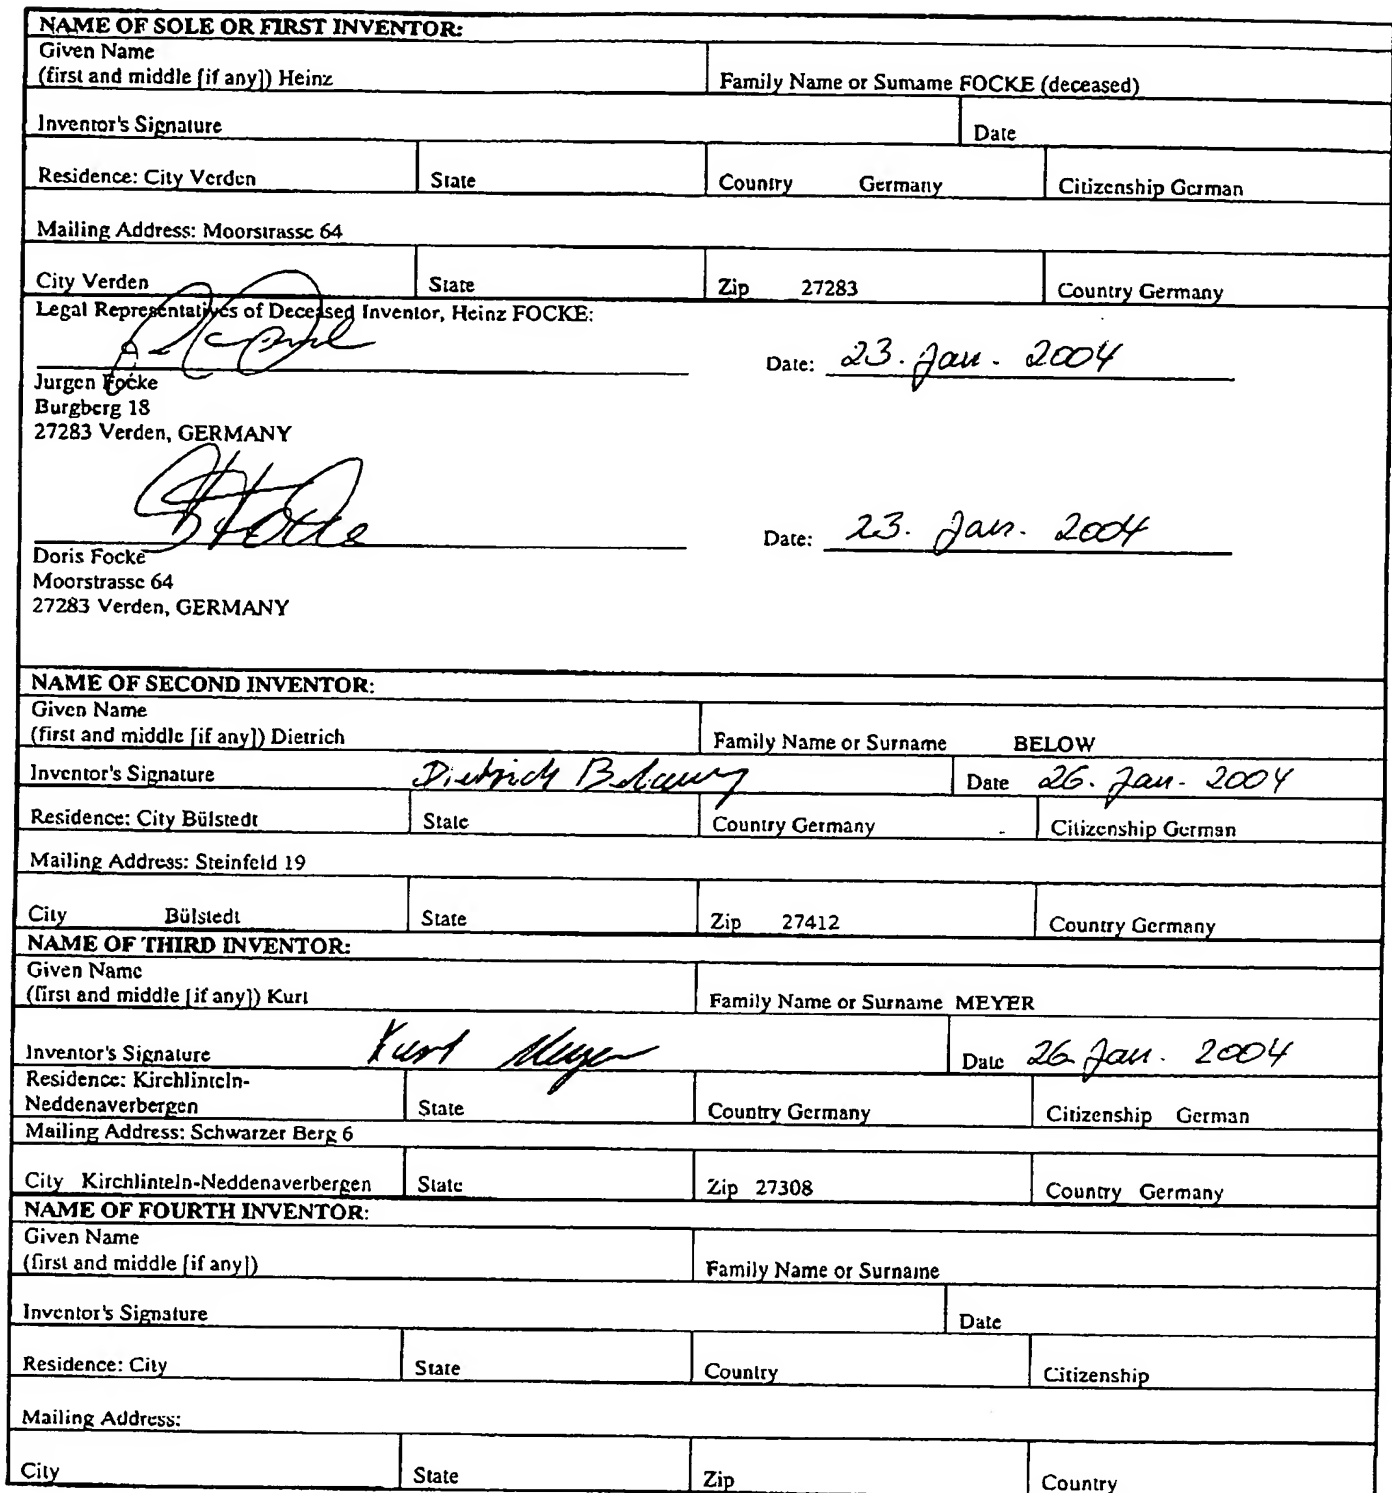 NAME OF SOLE OR FIRST INVENTOR:
Given Name
(first and middle [if any]) Heinz Family Name or Surname FOCKE (deceased)
Inventor's Signature Date
Residence: City Verden State Country Germany Citizenship German
Mailing Address: Moorstrasse 64
City Verden State Zip 27283 Country Germany
Legal Representatives of Deceased Inventor, Heinz FOCKE:
Date: 23. Jan. 2004
Jurgen Focke
Burgberg 18
27283 Verden, GERMANY
Focke Date: 23. Jan. 2004
Doris Focke
Moorstrasse 64
27283 Verden, GERMANY
NAME OF SECOND INVENTOR:
Given Name
(first and middle [if any]) Dietrich Family Name or Surname BELOW
Inventor's Signature Dietrich Below Date 26. Jan. 2004
Residence: City Bülstedt State Country Germany Citizenship German
Mailing Address: Steinfeld 19
City Bülstedt State Zip 27412 Country Germany
NAME OF THIRD INVENTOR:
Given Name
(first and middle [if any]) Kurt Family Name or Surname MEYER
Inventor's Signature Kurt Meyer Date 26. Jan. 2004
Residence: Kirchlinteln-
Neddenaverbergen State Country Germany Citizenship German
Mailing Address: Schwarzer Berg 6
City Kirchlinteln-Neddenaverbergen State Zip 27308 Country Germany
NAME OF FOURTH INVENTOR:
Given Name
(first and middle [if any]) Family Name or Surname
Inventor's Signature Date
Residence: City State Country Citizenship
Mailing Address:
City State Zip Country